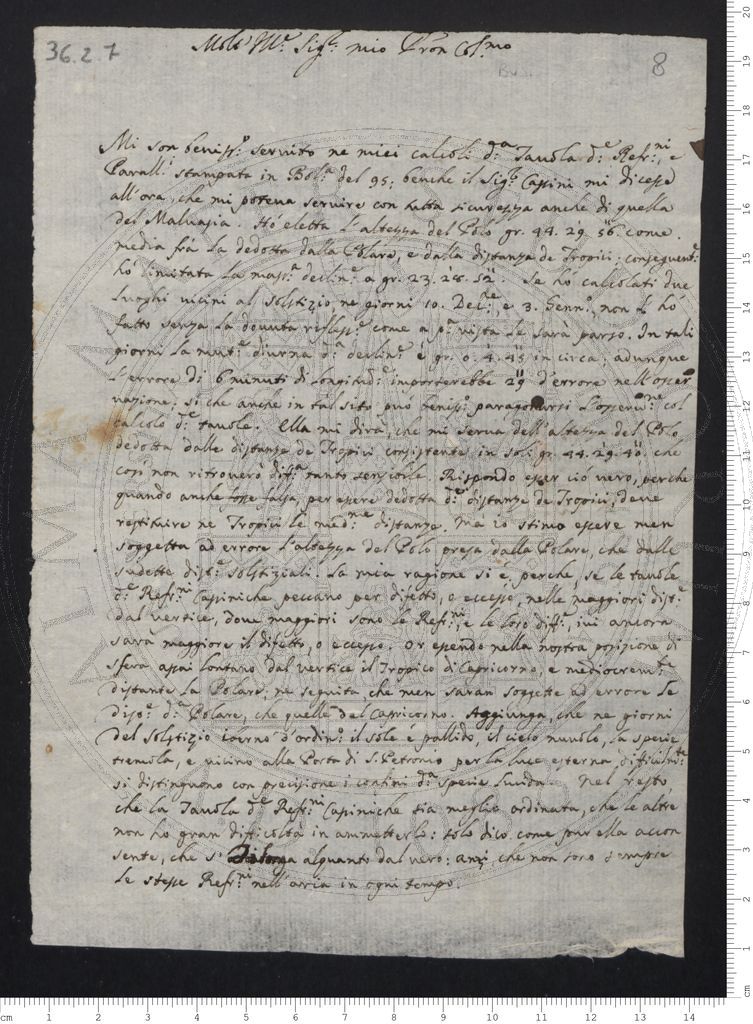 36.2.7
Molt' Ill.e Sig.r mio Pron Col.mo
8
Mi son beniss.o servito ne miei calcoli d.a Tavola d.e Refr.ni, e
Parall.i stampata in Bol.a del 95; benche il Sig.r Cassini mi dicesse
all'ora, che mi poteva servire con tutta sicurezza anche di quella
del Malvasia. Hó eletta l'altezza del Polo gr. 44. 29. 56. come
media frá la dedotta dalla Polare, e dalla distanza de Tropici; conseguen.te
hó limitata la mass.a declin.e a gr. 23. 28. 52. Se hó calcolati due
luoghi vicini al solstizio ne giorni 10. Dec.re, e 3. Genn.o, non l'hó
fatto senza la dovuta rifless.e come a p.a vista le sarà parso. In tali
giorni la mut.e diurna d.a declin.e é gr. 0. 4. 45 in circa; adunque
l'errore di 6 minuti di longitud.e importerebbe 29 d'errore nell'osser
vazione; si che anche in tal sito può beniss.o paragonarsi l'osserv.ne col
calcolo d.e tavole. Ella mi dirà, che mi serva dell'altezza del Polo
dedotta dalle distanze de Tropici consistente in soli gr. 44. 29. 40. che
così non ritroverò diff.a tanto sensibile. Rispondo esser ció vero, perche
quando anche fosse falsa, per essere dedotta d.e distanze de Tropici, deve
restituire ne Tropici le med.me distanze. Ma io stimo essere men
soggetta ad errore l'altezza del Polo presa dalla Polare, che dalle
sudette dist.e solstiziali. La mia ragione si é, perche, se le tavole
d.e Refr.ni Cassiniche peccano per difetto, o eccesso, nelle maggiori dist.e
dal vertice, dove maggiori sono le Refr.ni, e le loro diff.e, ivi ancora
sarà maggiore il difetto, o eccesso. Or essendo nella nostra posizione di
sfera assai lontano dal vertice il Tropico di Capricorno, e mediocrem.te
distante la Polare; ne seguita, che men saran soggette ad errore le
dist.e d.a Polare, che quelle del Capricorno. Aggiunga, che ne giorni
del solstizio iberno d'ordin.o il sole e pallido, il cielo nuvolo, la specie
tremola, e vicino alla Porta di S. Petronio per la luce esterna difficilm.te
si distinguono con precisione i confini d.a specie lucida. Nel resto
che la Tavola d.e Refr.ni Cassiniche sia meglio ordinata, che le altre
non ho gran difficoltà in ammetterlo: solo dico come pur ella accon
sente, che s' alquanto dal vero; anzi che non sono sempre
le stesse Refr.ni nell'aria in ogni tempo.